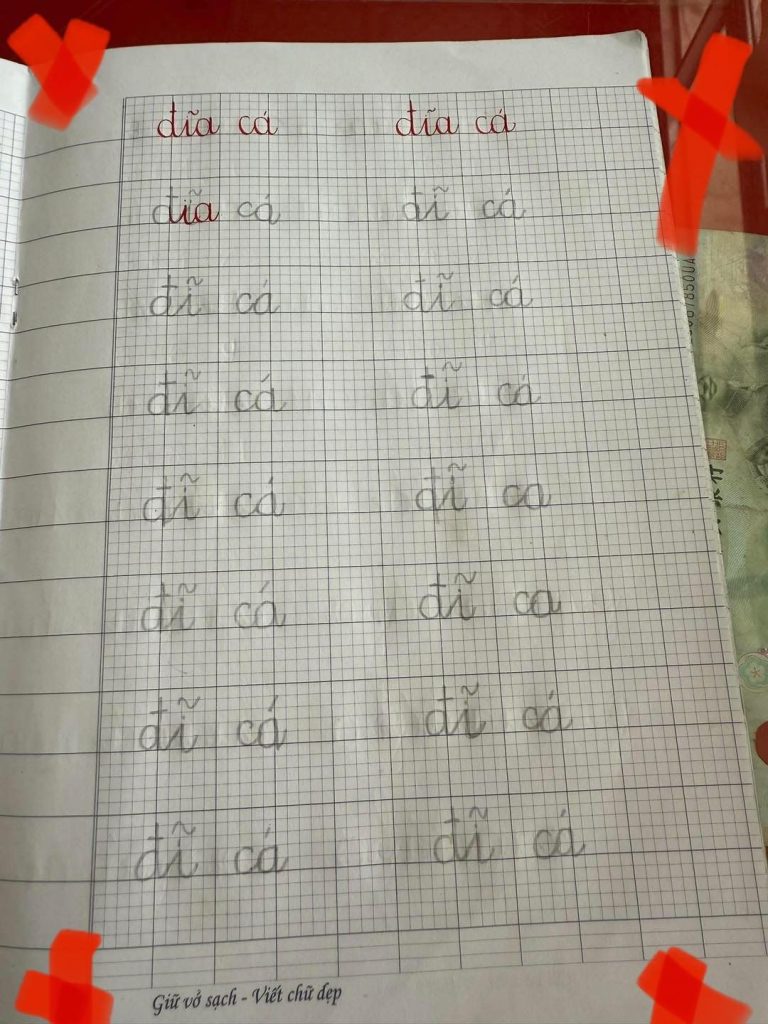 đĩa cá đĩa cá
đĩa cá đĩ cá
đĩ cá đĩ cá
đĩ cá đĩ cá
đĩ cá đĩ ca
đĩ cá đĩ ca
đĩ cá đĩ cá
đĩ cá đĩ cá
Giữ vở sạch - Viết chữ đẹp